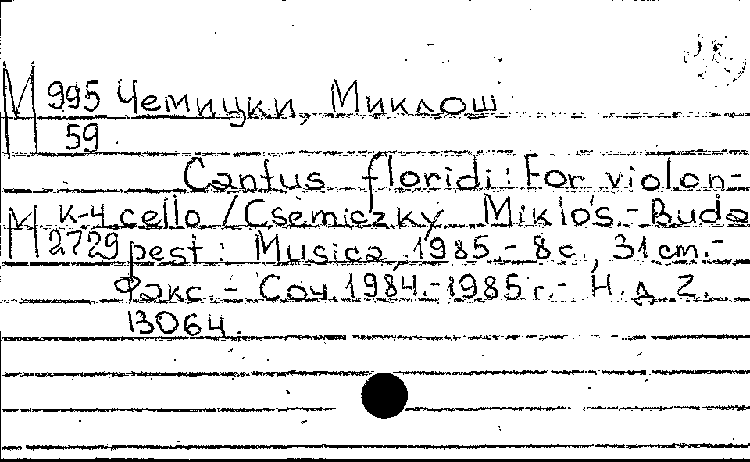 М 995 Чемицки, Миклош
59
Cantus floridi: For violon-
М к-4 cello / Csemiczky Miklós.- Buda
2729 pest: Musica, 1985.- 8 с., 31 cm.-
Факс. - Соч. 1984.-1985 г.- Н. д. Z.
13064.